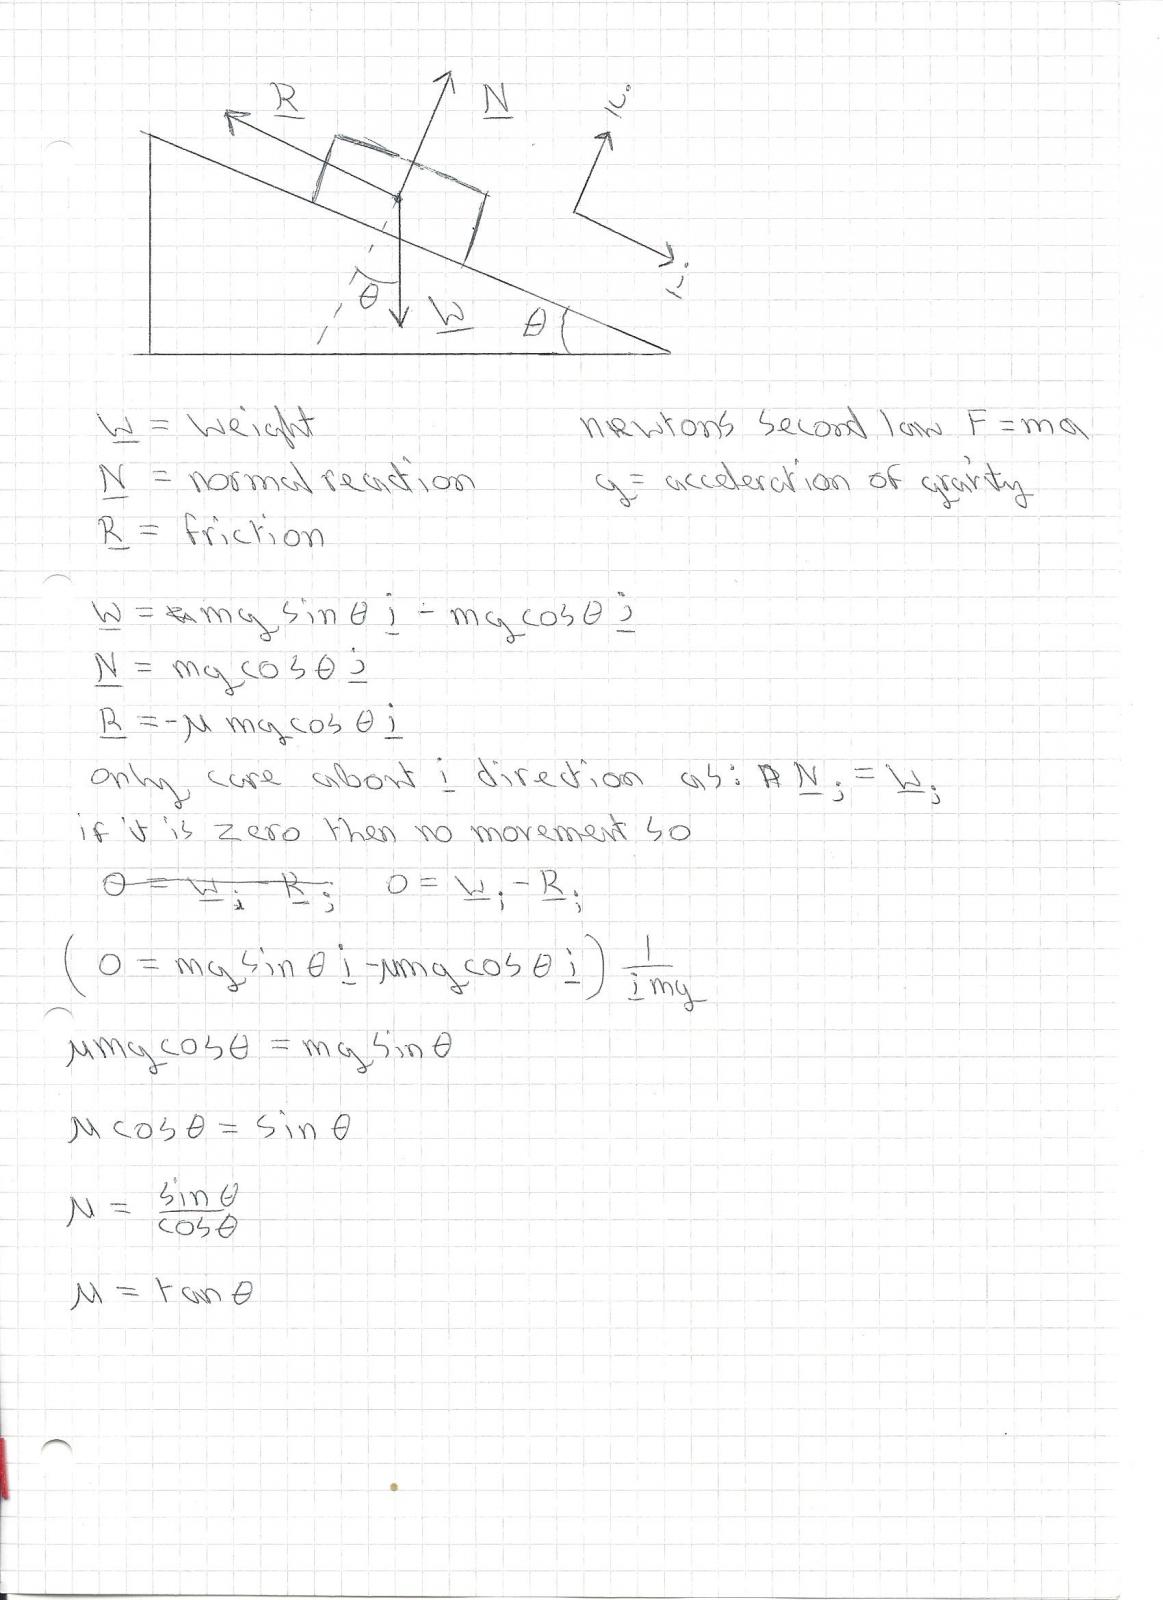 R N j
i
θ W θ
W = weight newtons second law F = ma
N = normal reaction g = acceleration of gravity
R = friction
W = mg sin θ i - mg cos θ j
N = mg cos θ j
R = -μ mg cos θ i
only care about i direction as: N j = W j
if it is zero then no movement so
0 = W i - R i 0 = W i - R i
( 0 = mg sin θ i - μmg cos θ i ) 1/i mg
μmg cos θ = mg sin θ
μ cos θ = sin θ
μ = sin θ/cos θ
μ = tan θ